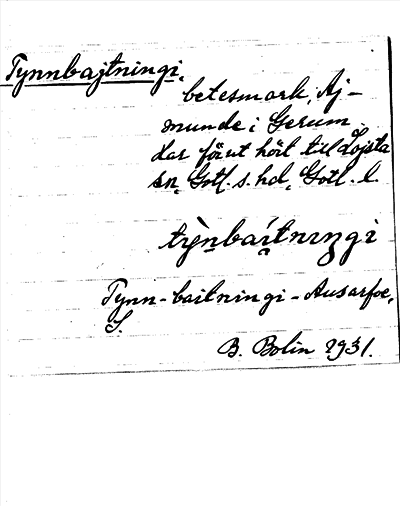 Tynnbajtningi,
betesmark, Aj-
munde i Gerum.
har förut hört till Lojsta
sn, Gotl. s. hd, Gotl. l.
tỳn̥bai̯tnıŋgi
Tynn-baitningi - Ausarfve,
S.
B. Bolin 1931.